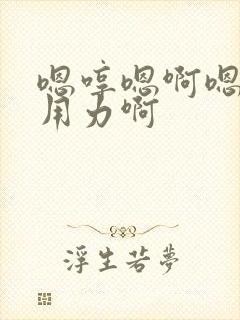 嗯哼嗯啊嗯
用力啊
浮生若夢